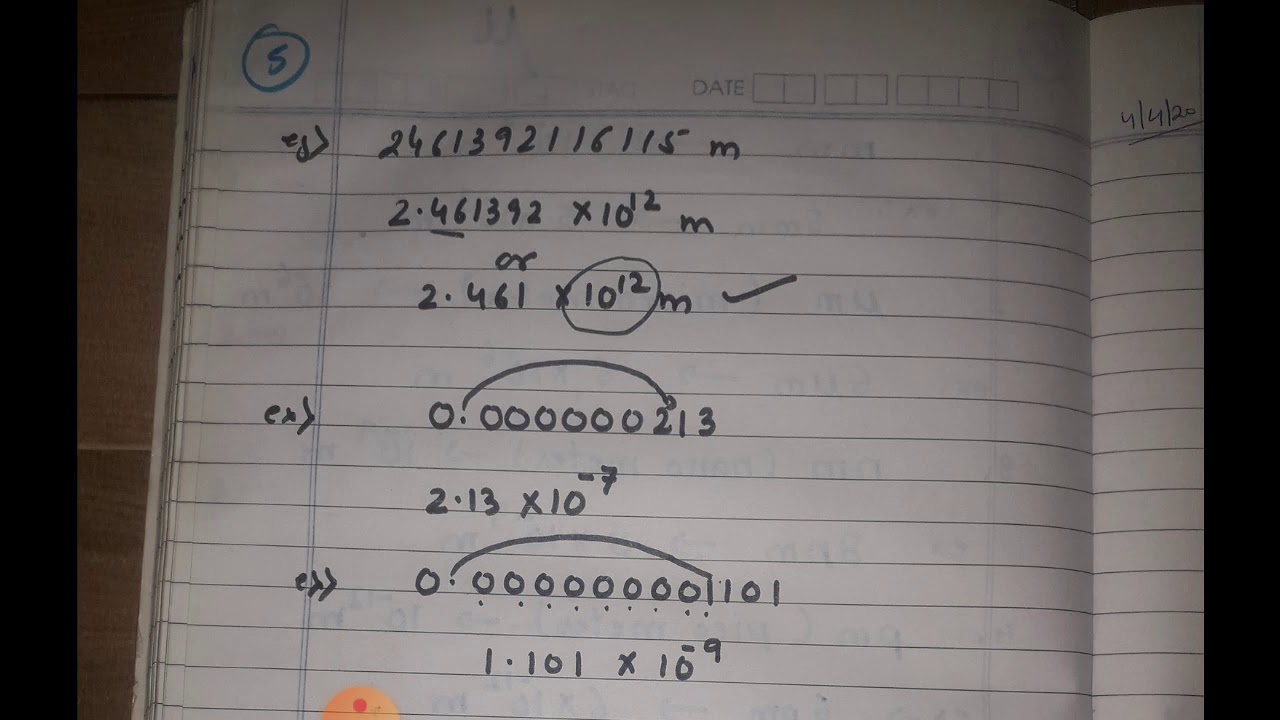 5
DATE
4/4/20
eg>> 2461392116115 m
2.461392 × 10¹² m
or
2.461 × 10¹² m ✓
ex>> 0.000000213
2.13 × 10⁻⁷
ex>> 0.000000001101
1.101 × 10⁻⁹